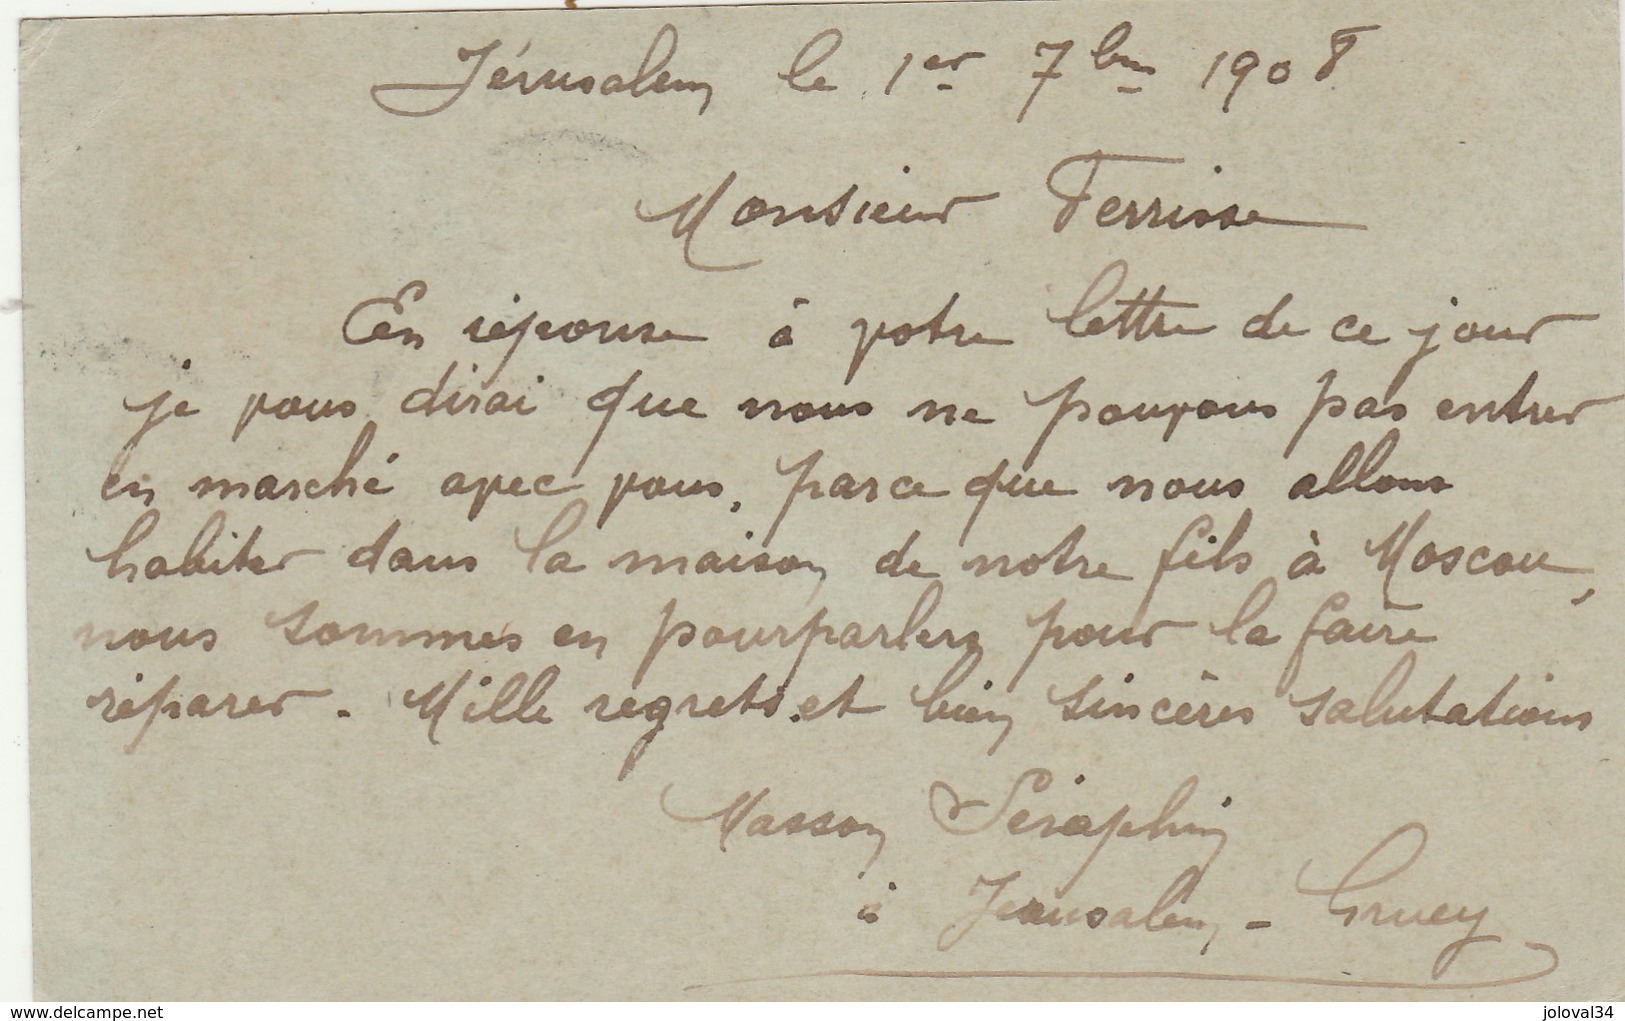 Jérusalem le 1er 7bre 1908
Monsieur Terrisse
En réponse à votre lettre de ce jour
je vous dirai que nous ne pouvons pas entrer
en marché avec vous, parce que nous allons
habiter dans la maison de notre fils à Moscou,
nous sommes en pourparlers pour la faire
réparer. Mille regrets et bien sincères salutations
Masson Séraphin
à Jérusalem - Gruey
www.delcampe.net
joloval34